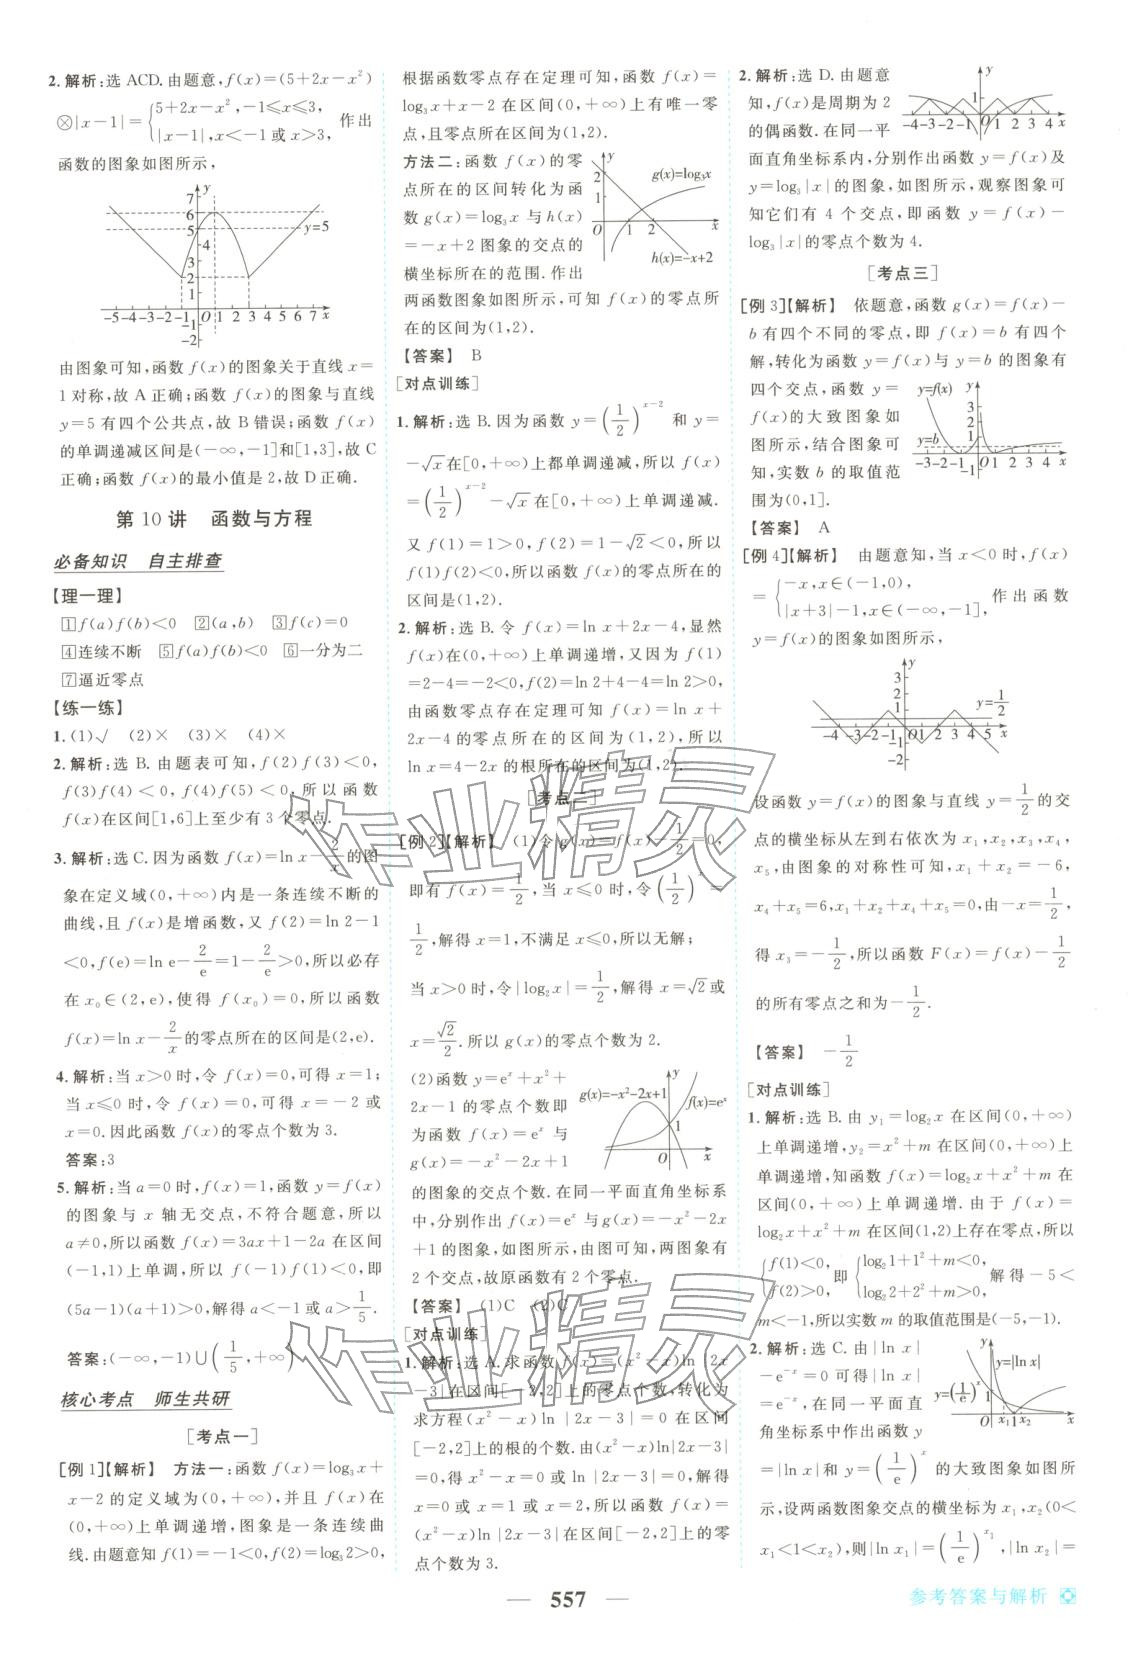 2.解析:选 ACD.由题意,f(x)=(5+2x-x²)
⊗|x-1|={5+2x-x²,-1≤x≤3, |x-1|,x<-1或x>3, 作出
函数的图象如图所示,
由图象可知,函数 f(x)的图象关于直线 x=
1对称,故 A 正确;函数 f(x)的图象与直线
y=5 有四个公共点,故 B 错误;函数 f(x)
的单调递减区间是(-∞,-1]和[1,3],故 C
正确;函数 f(x)的最小值是 2,故 D 正确.
第 10 讲 函数与方程
必备知识 自主排查
【理一理】
1 f(a)f(b)<0 2 (a,b) 3 f(c)=0
4 连续不断 5 f(a)f(b)<0 6 一分为二
7 逼近零点
【练一练】
1.(1)√ (2)× (3)× (4)×
2.解析:选 B.由题表可知,f(2)f(3)<0,
f(3)f(4)<0,f(4)f(5)<0,所以函数
f(x)在区间[1,6]上至少有 3 个零点.
3.解析:选 C.因为函数 f(x)=ln x-2/x 的图
象在定义域(0,+∞)内是一条连续不断的
曲线,且 f(x)是增函数,又 f(2)=ln 2-1
<0,f(e)=ln e-2/e=1-2/e>0,所以必存
在 x₀∈(2,e),使得 f(x₀)=0,所以函数
f(x)=ln x-2/x 的零点所在的区间是(2,e).
4.解析:当 x>0 时,令 f(x)=0,可得 x=1;
当 x≤0 时,令 f(x)=0,可得 x=-2 或
x=0.因此函数 f(x)的零点个数为 3.
答案:3
5.解析:当 a=0 时,f(x)=1,函数 y=f(x)
的图象与 x 轴无交点,不符合题意,所以
a≠0,所以函数 f(x)=3ax+1-2a 在区间
(-1,1)上单调,所以 f(-1)f(1)<0,即
(5a-1)(a+1)>0,解得 a<-1 或 a>1/5.
答案:(-∞,-1)∪(1/5,+∞)
核心考点 师生共研
[考点一]
[例 1]【解析】 方法一:函数 f(x)=log₃x+
x-2 的定义域为(0,+∞),并且 f(x)在
(0,+∞)上单调递增,图象是一条连续曲
线.由题意知 f(1)=-1<0,f(2)=log₃2>0,
根据函数零点存在定理可知,函数 f(x)=
log₃x+x-2 在区间(0,+∞)上有唯一零
点,且零点所在区间为(1,2).
方法二:函数 f(x)的零
点所在的区间转化为函
数 g(x)=log₃x 与 h(x)
=-x+2 图象的交点的
横坐标所在的范围.作出
g(x)=log₃x
h(x)=-x+2
两函数图象如图所示,可知 f(x)的零点所
在的区间为(1,2).
【答案】 B
[对点训练]
1.解析:选 B.因为函数 y=(1/2)^(x-2) 和 y=
-√x在[0,+∞)上都单调递减,所以 f(x)
=(1/2)^(x-2)-√x在[0,+∞)上单调递减.
又 f(1)=1>0,f(2)=1-√2<0,所以
f(1)f(2)<0,所以函数 f(x)的零点所在的
区间是(1,2).
2.解析:选 B.令 f(x)=ln x+2x-4,显然
f(x)在(0,+∞)上单调递增,又因为 f(1)
=2-4=-2<0,f(2)=ln 2+4-4=ln 2>0,
由函数零点存在定理可知 f(x)=ln x+
2x-4 的零点所在的区间为(1,2),所以
ln x=4-2x 的根所在的区间为(1,2).
[考点二]
[例 2]【解析】 (1)令 g(x)=f(x)-1/2=0,
即有 f(x)=1/2,当 x≤0 时,令(1/2)^x=
1/2,解得 x=1,不满足 x≤0,所以无解;
当 x>0 时,令|log₂x|=1/2,解得 x=√2或
x=√2/2.所以 g(x)的零点个数为 2.
(2)函数 y=eˣ+x²+
2x-1 的零点个数即
为函数 f(x)=eˣ 与
g(x)=-x²-2x+1
g(x)=-x²-2x+1
f(x)=eˣ
的图象的交点个数.在同一平面直角坐标系
中,分别作出 f(x)=eˣ 与 g(x)=-x²-2x
+1 的图象,如图所示,由图可知,两图象有
2 个交点,故原函数有 2 个零点.
【答案】 (1)C (2)C
[对点训练]
1.解析:选 A.求函数 f(x)=(x²-x)ln|2x
-3|在区间[-2,2]上的零点个数,转化为
求方程(x²-x)ln|2x-3|=0 在区间
[-2,2]上的根的个数.由(x²-x)ln|2x-3|
=0,得 x²-x=0 或 ln|2x-3|=0,解得
x=0 或 x=1 或 x=2,所以函数 f(x)=
(x²-x)ln|2x-3|在区间[-2,2]上的零
点个数为 3.
2.解析:选 D.由题意
知,f(x)是周期为 2
的偶函数.在同一平
面直角坐标系内,分别作出函数 y=f(x)及
y=log₃|x|的图象,如图所示,观察图象可
知它们有 4 个交点,即函数 y=f(x)-
log₃|x|的零点个数为 4.
[考点三]
[例 3]【解析】 依题意,函数 g(x)=f(x)-
b 有四个不同的零点,即 f(x)=b 有四个
解,转化为函数 y=f(x)与 y=b 的图象有
四个交点,函数 y=
f(x)的大致图象如
图所示,结合图象可
知,实数 b 的取值范
围为(0,1].
y=f(x)
y=b
【答案】 A
[例 4]【解析】 由题意知,当 x<0 时,f(x)
={-x,x∈(-1,0), |x+3|-1,x∈(-∞,-1], 作出函数
y=f(x)的图象如图所示,
y=1/2
设函数 y=f(x)的图象与直线 y=1/2 的交
点的横坐标从左到右依次为 x₁,x₂,x₃,x₄,
x₅,由图象的对称性可知,x₁+x₂=-6,
x₄+x₅=6,x₁+x₂+x₄+x₅=0,由-x=1/2,
得 x₃=-1/2,所以函数 F(x)=f(x)-1/2
的所有零点之和为-1/2.
【答案】 -1/2
[对点训练]
1.解析:选 B.由 y₁=log₂x 在区间(0,+∞)
上单调递增,y₂=x²+m 在区间(0,+∞)上
单调递增,知函数 f(x)=log₂x+x²+m 在
区间(0,+∞)上单调递增.由于 f(x)=
log₂x+x²+m 在区间(1,2)上存在零点,所以
{f(1)<0, f(2)>0, 即 {log₂1+1²+m<0, log₂2+2²+m>0, 解得-5<
m<-1,所以实数 m 的取值范围是(-5,-1).
2.解析:选 C.由|ln x|
-e⁻ˣ=0 可得|ln x|
=e⁻ˣ,在同一平面直
角坐标系中作出函数 y
y=|ln x|
y=(1/e)^x
=|ln x|和 y=(1/e)^x 的大致图象如图所
示,设两函数图象交点的横坐标为 x₁,x₂(0<
x₁<1<x₂),则|ln x₁|=(1/e)^x₁,|ln x₂|=
557
参考答案与解析
作业精灵
作业精灵